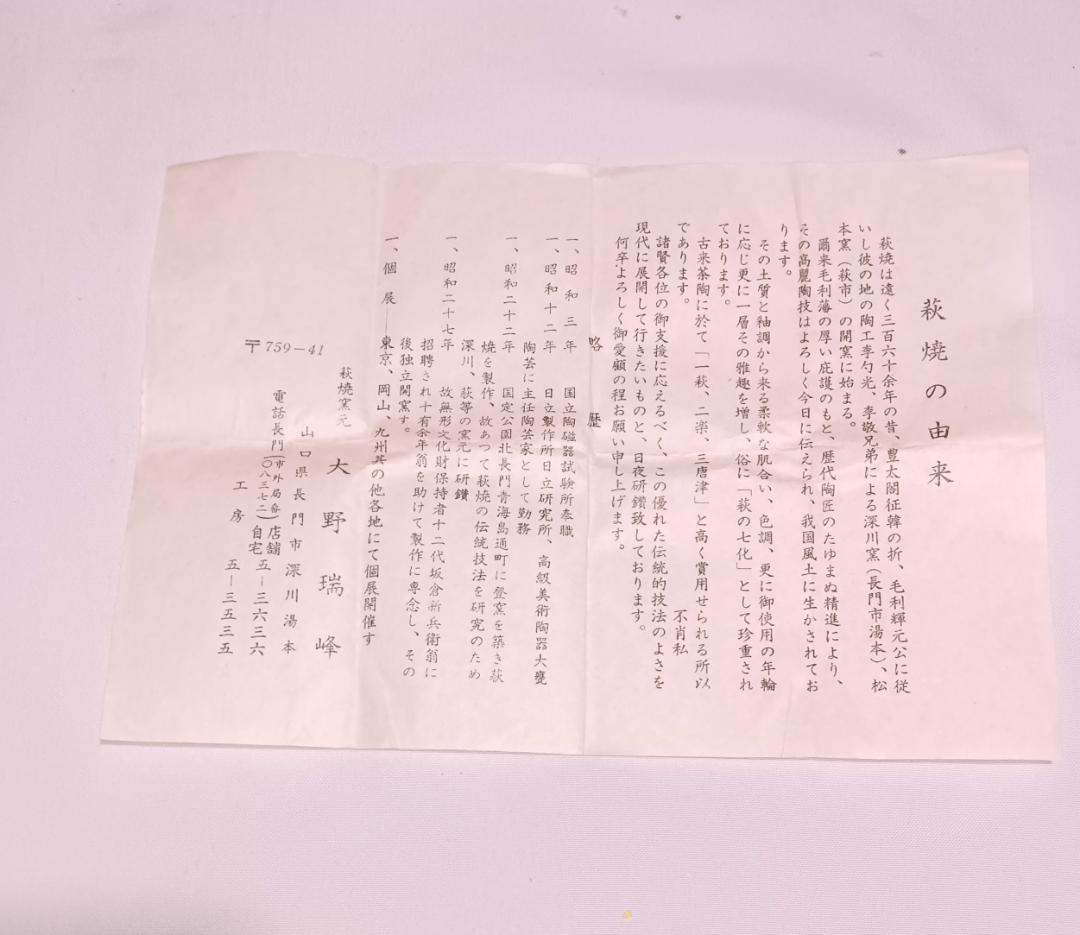 萩焼の由来
萩焼は遠く三百六十余年の昔、豊太閤征韓の折、毛利輝元公に従
いし彼の地の陶工李勺光、李敬兄弟による深川窯（長門市湯本）、松
本窯（萩市）の開窯に始まる。
爾来毛利藩の厚い庇護のもと、歴代陶匠のたゆまぬ精進により、
その高麗陶技はよろしく今日に伝えられ、我国風土に生かされてお
ります。
その土質と釉調から来る柔軟な肌合い、色調、更に御使用の年輪
に応じ更に一層その雅趣を増し、俗に「萩の七化」として珍重され
ております。
古来茶陶に於て「一萩、二楽、三唐津」と高く賞用せられる所以
であります。　不肖私
諸賢各位の御支援に応えるべく、この優れた伝統的技法のよさを
現代に展開して行きたいものと、日夜研鑽致しております。
何卒よろしく御愛顧の程お願い申し上げます。
略歴
一、昭和三年　国立陶磁器試験所奉職
一、昭和十二年　日立製作所日立研究所、高級美術陶器大甕
陶芸に主任陶芸家として勤務
一、昭和二十二年　国定公園北長門青海島通町に登窯を築き萩
焼を製作、故あつて萩焼の伝統技法を研究のため
深川、萩等の窯元に研鑽
一、昭和二十七年　故無形文化財保持者十二代坂倉新兵衛翁に
招聘され十有余年翁を助けて製作に専念し、その
後独立開窯す。
一、個展――東京、岡山、九州其の他各地にて個展開催す
萩焼窯元　大野瑞峰
〒759-41
山口県長門市深川湯本
電話長門（市外局番〇八三七二）店舗　五―三六三六
自宅
工房　五―三五三五